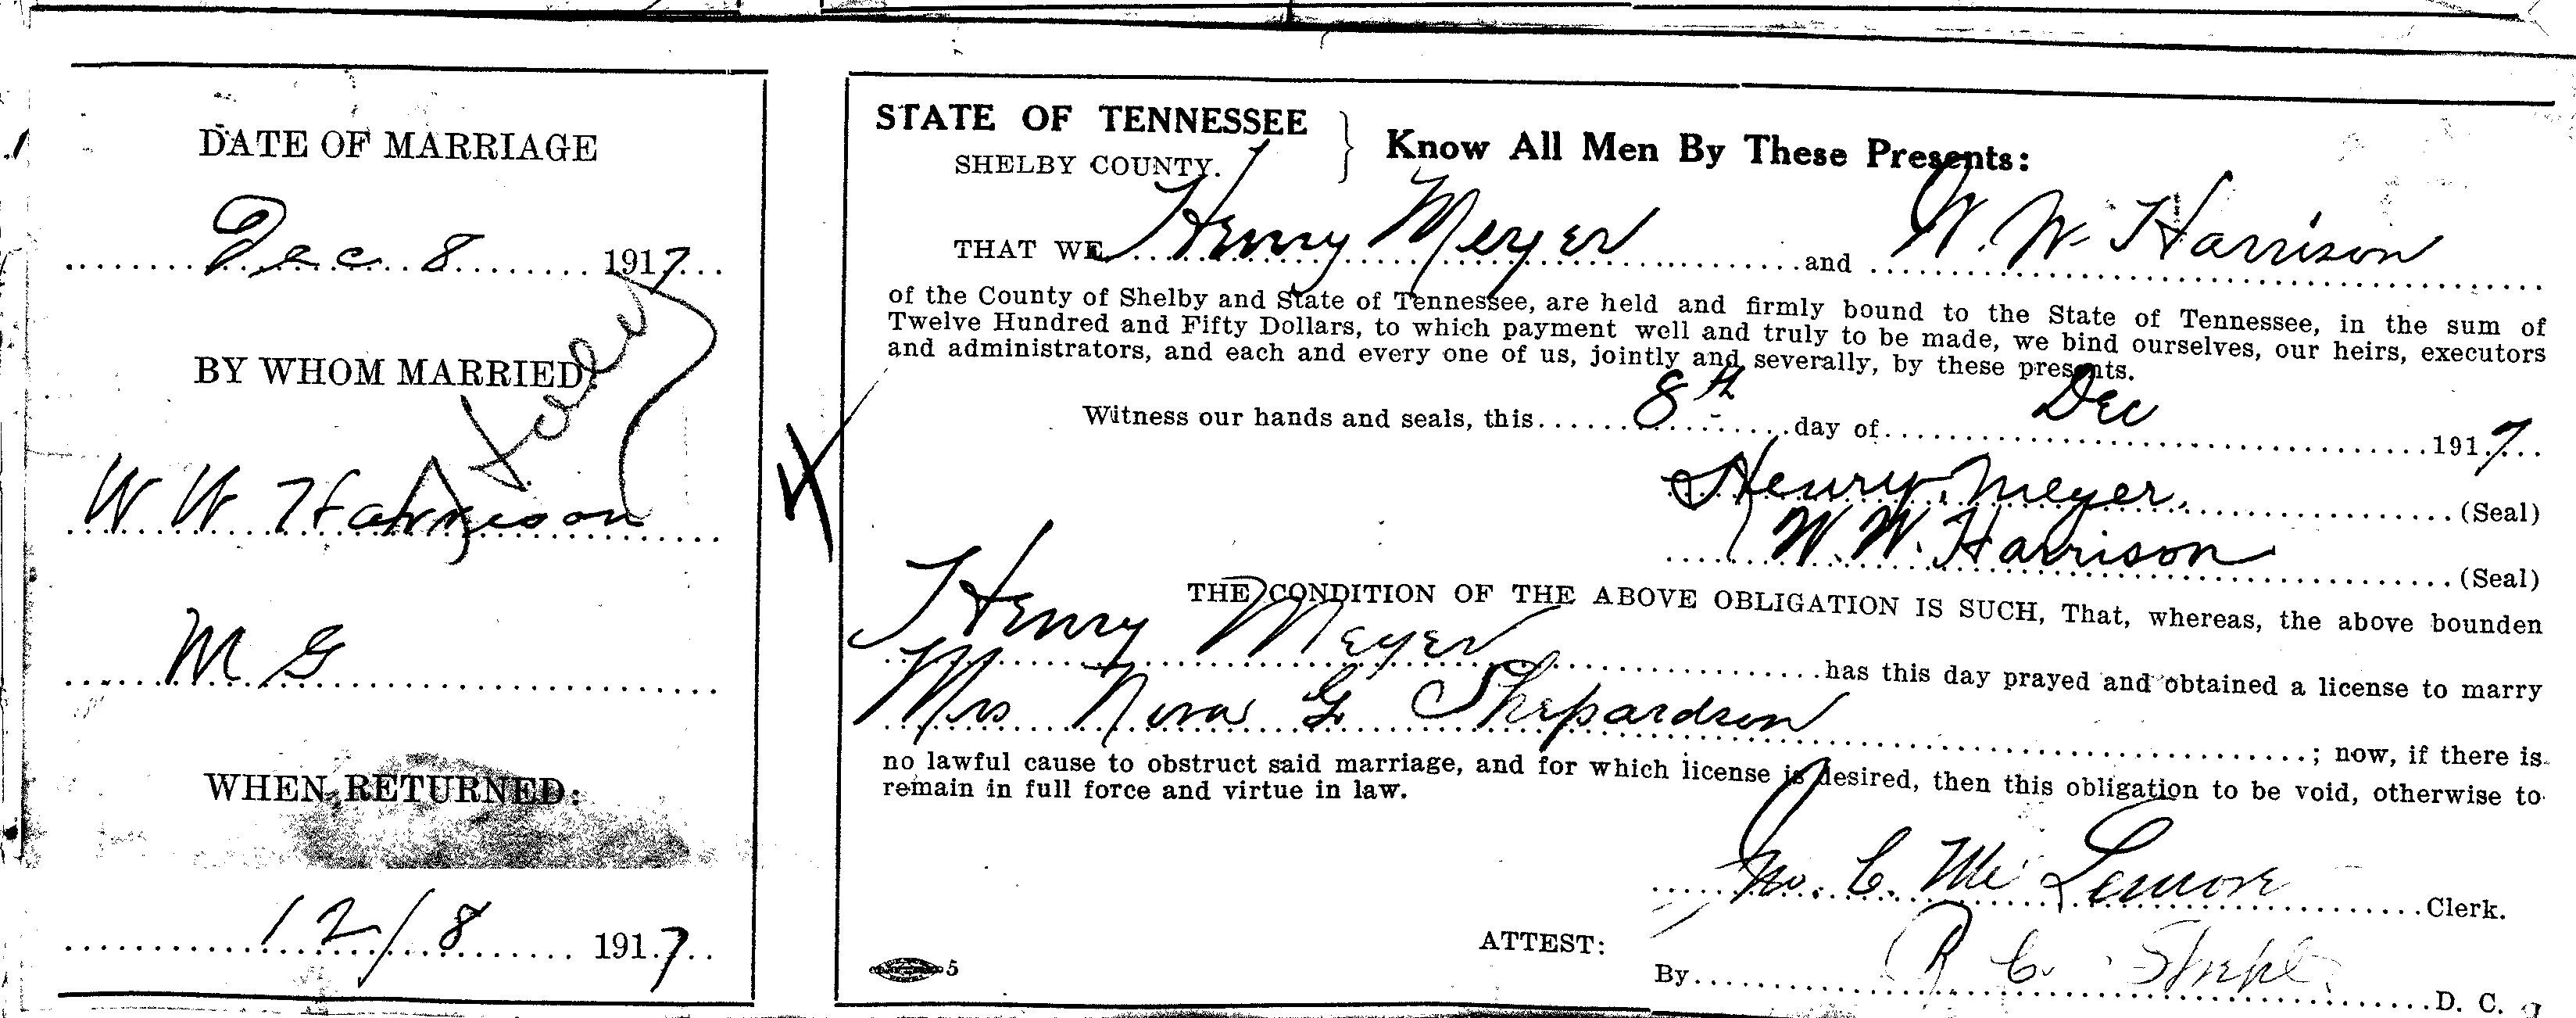 DATE OF MARRIAGE
Dec 8 1917
BY WHOM MARRIED:
W W Harrison
M G
WHEN RETURNED:
12/8 1917
STATE OF TENNESSEE
SHELBY COUNTY.
} Know All Men By These Presents:
THAT WE Henry Meyer and W. W. Harrison
of the County of Shelby and State of Tennessee, are held and firmly bound to the State of Tennessee, in the sum of
Twelve Hundred and Fifty Dollars, to which payment well and truly to be made, we bind ourselves, our heirs, executors
and administrators, and each and every one of us, jointly and severally, by these presents.
Witness our hands and seals, this 8th day of Dec 1917
Henry Meyer. (Seal)
W. W. Harrison (Seal)
THE CONDITION OF THE ABOVE OBLIGATION IS SUCH, That, whereas, the above bounden
Henry Meyer has this day prayed and obtained a license to marry
Mrs Nora G Shepardson ; now, if there is
no lawful cause to obstruct said marriage, and for which license is desired, then this obligation to be void, otherwise to
remain in full force and virtue in law.
C. Mc Lemore Clerk.
ATTEST:
By R C. D. C.
5